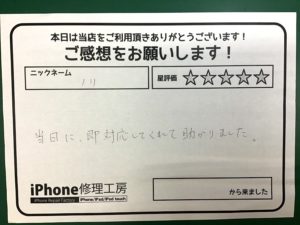 本日は当店をご利用頂きありがとうございます！
ご感想をお願いします！
ニックネーム
ノリ
星評価 ☆☆☆☆☆
当日に、即対応してくれて助かりました。
iPhone修理工房
iPhone Repair Factory
iPhone/iPad/iPod touch
から来ました